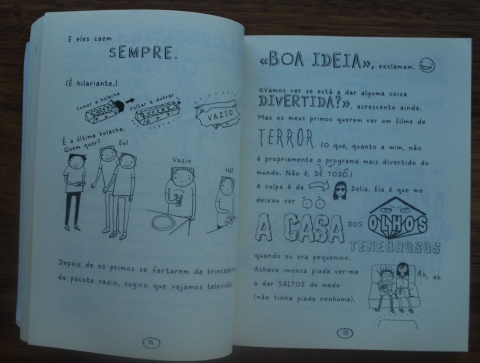 E eles caem
SEMPRE.
(É hilariante.)
Comer a bolacha
Voltar a dobrar
VAZIO
É a última bolacha.
Quem quer?
Eu!
Vazio
Depois de os primos se fartarem da brincadeira
do pacote vazio, sugiro que vejamos televisão.
74
«BOA IDEIA», exclamam.
«Vamos ver se está a dar alguma coisa
DIVERTIDA?», acrescento ainda.
Mas os meus primos querem ver um filme de
TERROR. (O que, quanto a mim, não
é propriamente o programa mais divertido do
mundo. Não é, DE TODO.)
A culpa é da Delia. Ela é que me
deixou ver
A CASA DOS OLHOS
TENEBROSOS
quando eu era pequenino.
Achava imensa piada ver-me
a dar SALTOS de medo
(não tinha piada nenhuma).
Ah, ah